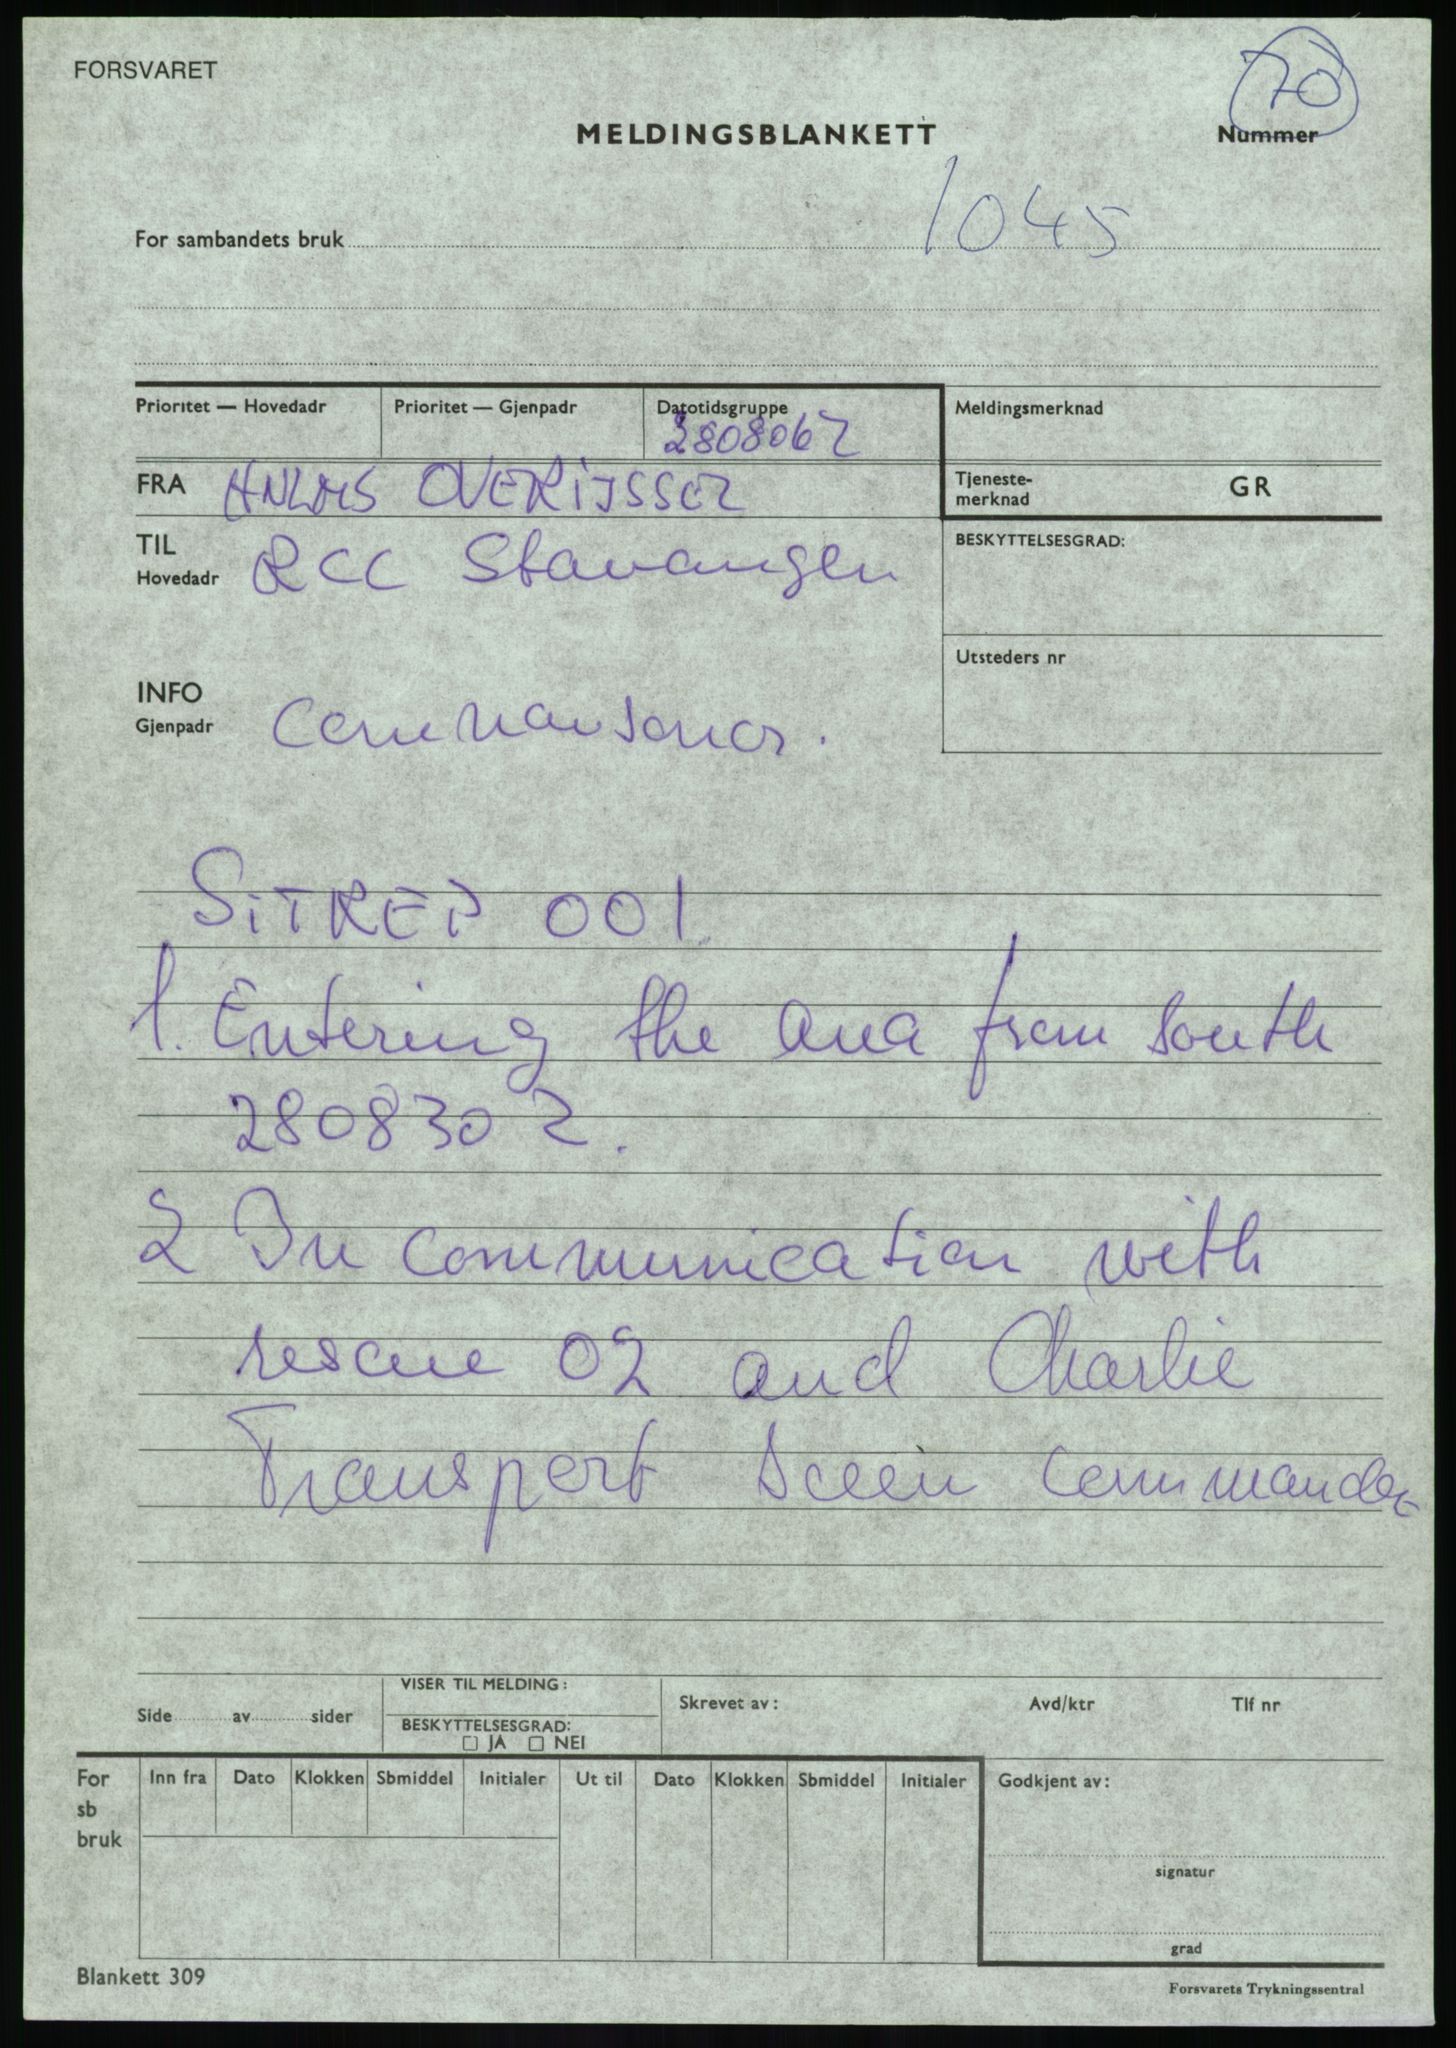 FORSVARET
70
MELDINGSBLANKETT
Nummer
1045
For sambandets bruk
Prioritet — Hovedadr
Prioritet — Gjenpadr
Datotidsgruppe
280806Z
Meldingsmerknad
FRA HNLMS OVERIJSSEL
Tjeneste-
merknad
GR
TIL
Hovedadr
RCC Stavanger
BESKYTTELSESGRAD:
Utsteders nr
INFO
Gjenpadr
SITREP 001
1. Entering the area from south
280830Z.
2 In communication with
rescue 02 and Charlie
Transport Sceen Commander
Side av sider
VISER TIL MELDING:
BESKYTTELSESGRAD:
JA NEI
Skrevet av:
Avd/ktr
Tlf nr
For
sb
bruk
Inn fra Dato Klokken Sbmiddel Initialer Ut til Dato Klokken Sbmiddel Initialer
Godkjent av:
signatur
grad
Blankett 309
Forsvarets Trykningssentral